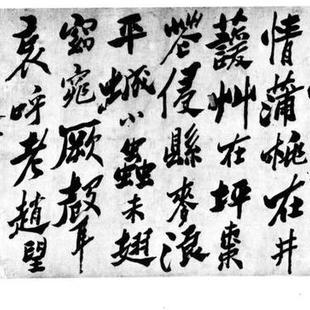 情蒲桃在井
蘐艸在坪棗
侵縣麥浪
平城小蟲未翅
窈窕厥聲
哀呼老趙望